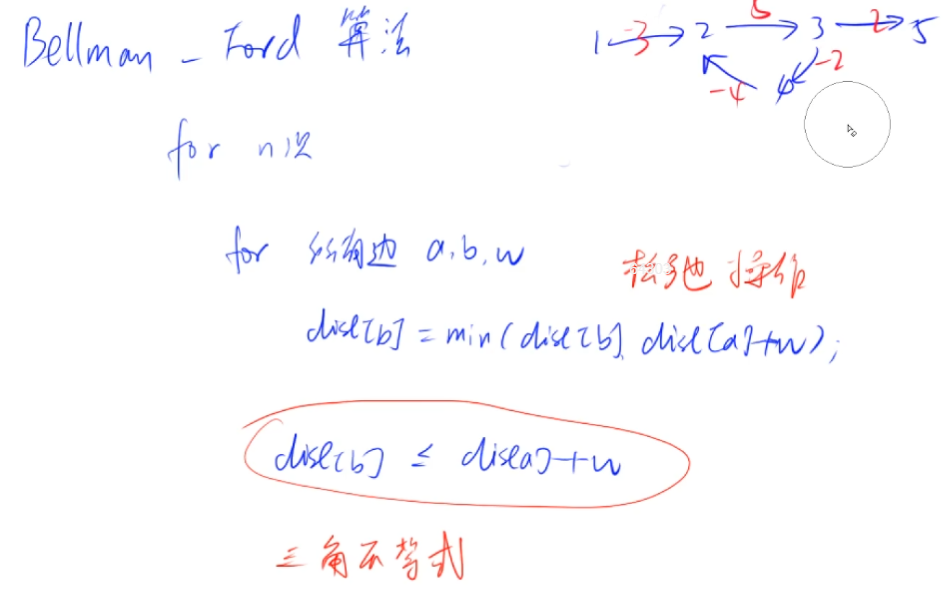 Bellman - Ford 算法
1 -3 2 5 3 2 5
-4 4 -2
for n次
for 所有边 a,b,w
松弛操作
dist[b] = min(dist[b], dist[a]+w);
dist[b] ≤ dist[a]+w
三角不等式